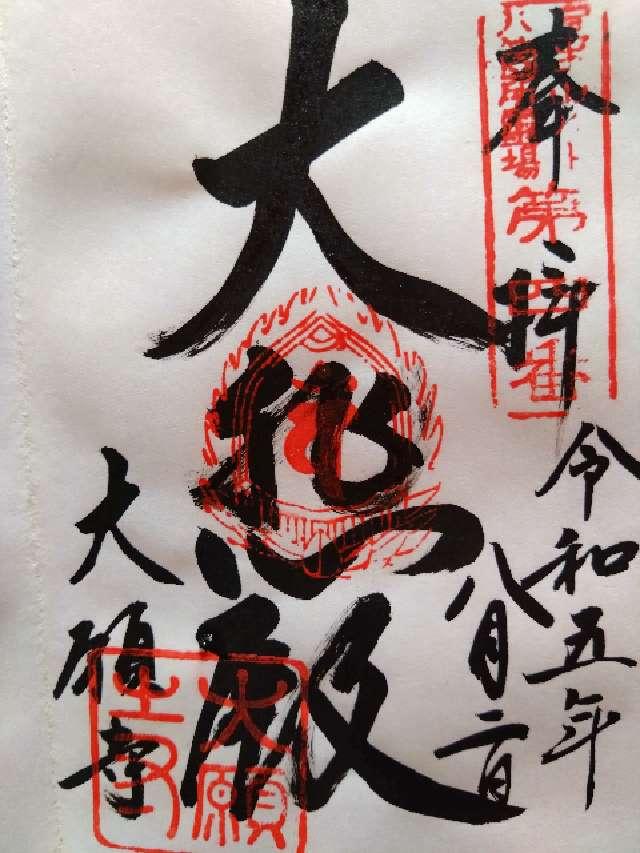 奉拝
令和五年
八月二日
大悲殿
大願寺
霊場
第四番
大願